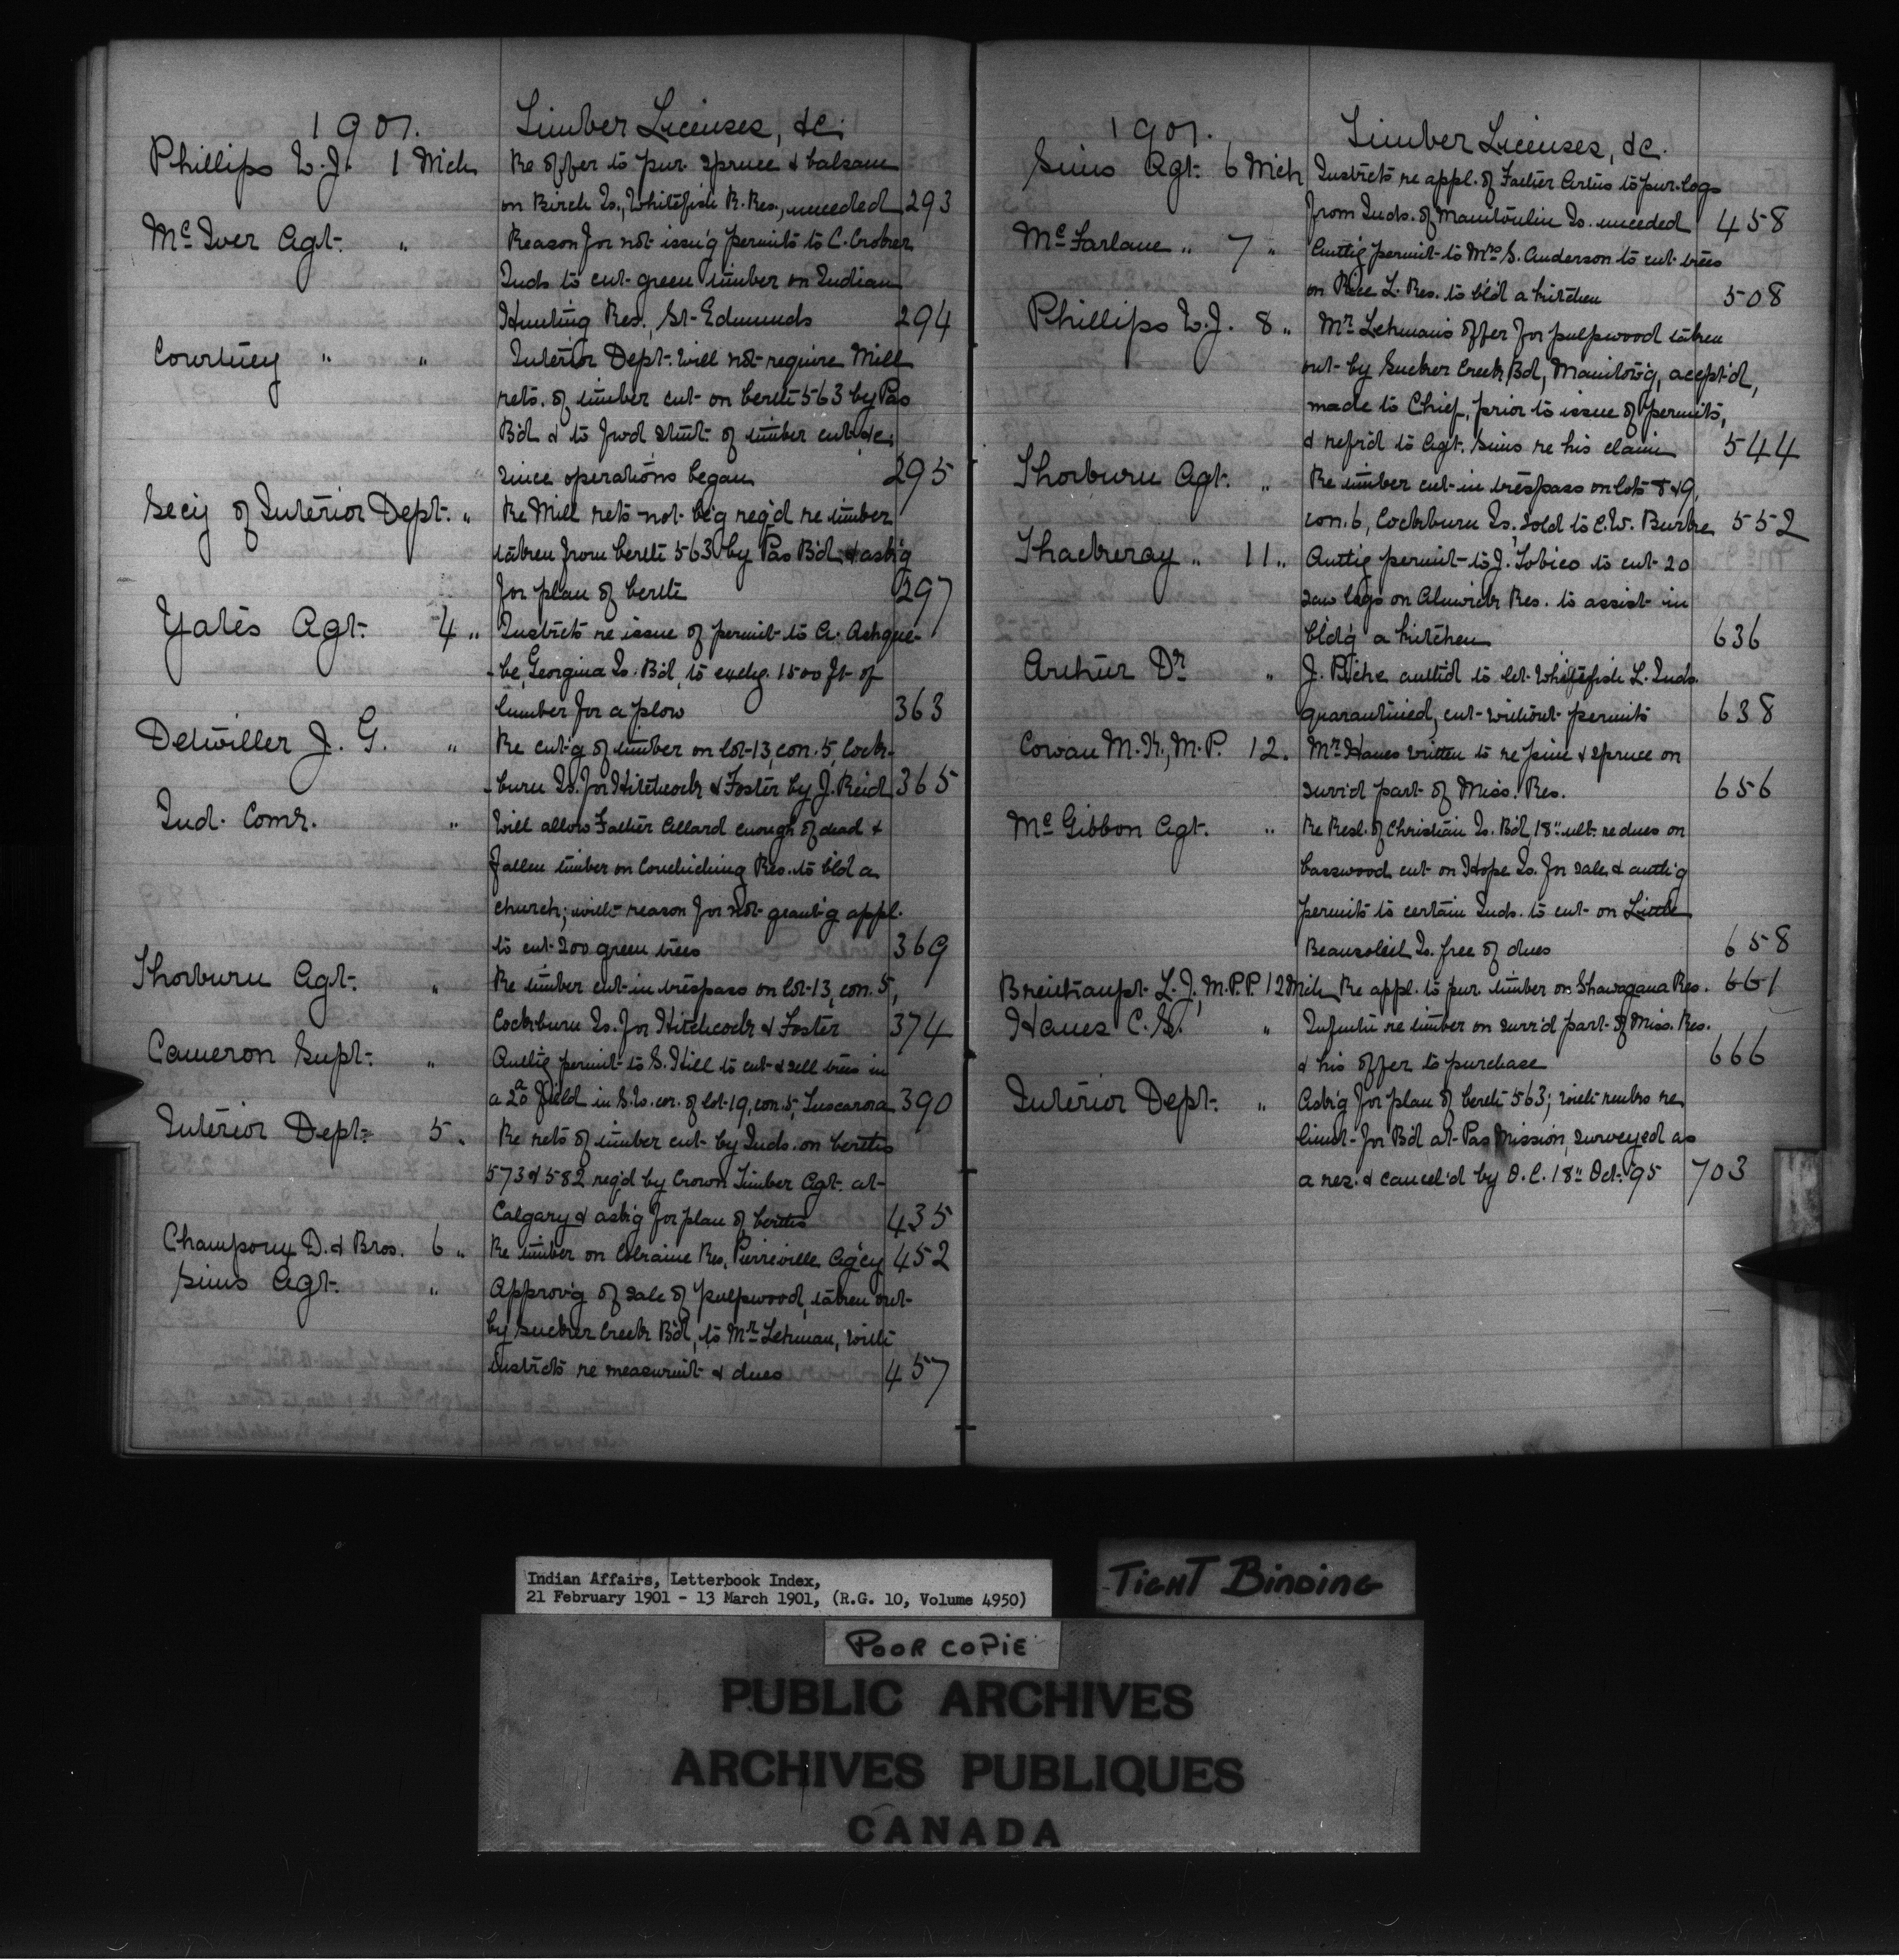 1901. Timber Licenses, &c.
Phillips W.J. 1 Mch Re offer to pur. spruce & balsam
on Birch Is., Whitefish R. Res., unceded 293
McIver Agt. " Reason for not issu'g permits to C. Croker
Inds to cut green timber on Indian
Hunting Res., St. Edmunds 294
Courtney " " Interior Dept. will not require Mill
rets. of timber cut on berth 563 by Pas
B'd & to fwd stmt. of timber cut &c.
since operations began 295
Sec'y of Interior Dept. " Re Mill rets not be'g req'd re timber
taken from berth 563 by Pas B'd & ask'g
for plan of berth 297
Yates Agt. 4 " Instrcts re issue of permit to A. Ashque-
-be, Georgina Is. B'd, to exchg. 1500 ft. of
lumber for a plow 363
Detwiller J. G. " Re cut'g of timber on lot 13, con. 5, Cock-
-burn Is. for Hitchcock & Foster by J. Reid 365
Ind. Comr. " Will allow Father Allard enough of dead &
fallen timber on Couchiching Res. to bld a
church; with reason for not grant'g appl.
to cut 200 green trees 369
Thorburn Agt. " Re timber cut in trespass on lot 13, con. 5,
Cockburn Is. for Hitchcock & Foster 374
Cameron Supt. " Auth'g permit to S. Hill to cut & sell trees in
a 2a field in S.W. cor. of lot 19, con. 5, Tuscarora 390
Interior Dept. 5 " Re rets of timber cut by Inds. on berths
573 & 582 req'd by Crown Timber Agt. at
Calgary & ask'g for plan of berths 435
Champoux D. & Bros. 6 " Re timber on Lolraine Res., Pierreville Ag'cy 452
Sims Agt. " Approv'g of sale of pulpwood, taken out
by Sucker Creek B'd, to Mr. Lehman, with
instrcts re measurmt & dues 457
1901. Timber Licenses, &c.
Sims Agt. 6 Mch Instrcts re appl. of Father Artus to pur. logs
from Inds. of Manitoulin Is. unceded 458
McFarlane " 7 " Auth'g permit to Mrs S. Anderson to cut trees
on Rice L. Res. to bld a kitchen 508
Phillips W.J. 8 " Mr Lehman's offer for pulpwood taken
out by Sucker Creek B'd, Manitow'g, accpt'd,
made to Chief, prior to issue of permits,
& refr'd to Agt. Sims re his claim 544
Thorburn Agt. " Re timber cut in trespass on lots 8 & 9,
con. 6, Cockburn Is. sold to C.W. Burke 552
Thackeray " 11 " Auth'g permit to J. Tobico to cut 20
saw logs on Alnwick Res. to assist in
bld'g a kitchen 636
Arthur Dr " J. Biche auth'd to let Whitefish L. Inds.
quarantined, cut without permits 638
Cowan M.K., M.P. 12 " Mr Hanes written to re pine & spruce on
surr'd part of Miss. Res. 656
McGibbon Agt. " Re Resl. of Christian Is. B'd, 18" ult. re dues on
basswood cut on Hope Is. for sale & auth'g
permits to certain Inds. to cut on Little
Beausoleil Is. free of dues 658
Breithaupt L.J., M.P.P. 12 Mch Re appl. to pur timber on Shawagana Res. 661
Hanes C.S. " Infmtn re timber on surr'd part of Miss. Res.
& his offer to purchase 666
Interior Dept. " Ask'g for plan of berth 563; with remks re
limit for B'd at Pas Mission, surveyed as
a res. & cancel'd by O.C. 18" Oct. '95 703
Indian Affairs, Letterbook Index,
21 February 1901 - 13 March 1901, (R.G. 10, Volume 4950)
TIGHT BINDING
POOR COPIE
PUBLIC ARCHIVES
ARCHIVES PUBLIQUES
CANADA